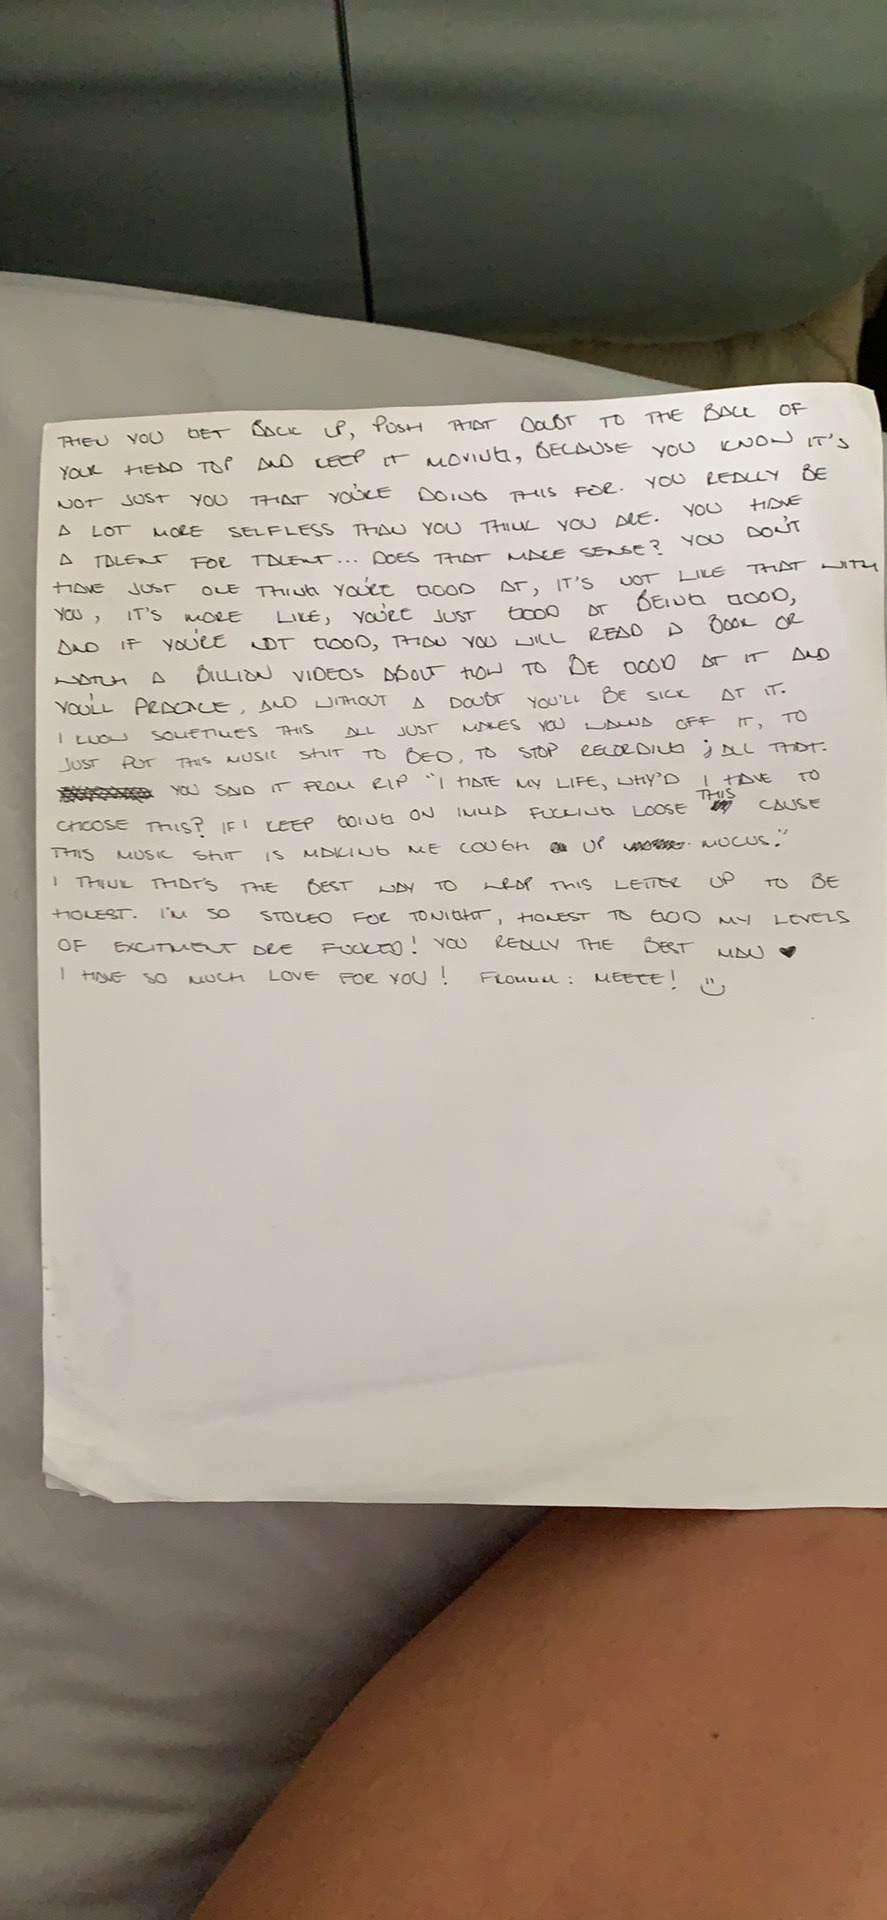 THEN YOU GET BACK UP, PUSH THAT DOUBT TO THE BACK OF
YOUR HEAD TOP AND KEEP IT MOVING, BECAUSE YOU KNOW IT'S
NOT JUST YOU THAT YOU'RE DOING THIS FOR. YOU REALLY BE
A LOT MORE SELFLESS THAN YOU THINK YOU ARE. YOU HAVE
A TALENT FOR TALENT... DOES THAT MAKE SENSE? YOU DON'T
HAVE JUST ONE THING YOU'RE GOOD AT, IT'S NOT LIKE THAT WITH
YOU, IT'S MORE LIKE, YOU'RE JUST GOOD AT BEING GOOD,
AND IF YOU'RE NOT GOOD, THAN YOU WILL READ A BOOK OR
WATCH A BILLION VIDEOS ABOUT HOW TO BE GOOD AT IT AND
YOU'LL PRACTICE, AND WITHOUT A DOUBT YOU'LL BE SICK AT IT.
I KNOW SOMETIMES THIS ALL JUST MAKES YOU WANNA OFF IT, TO
JUST PUT THIS MUSIC SHIT TO BED, TO STOP RECORDING & ALL THAT.
YOU SAID IT FROM RIP "I HATE MY LIFE, WHY'D I HAVE TO
CHOOSE THIS? IF I KEEP GOING ON IMMA FUCKING LOOSE THIS CAUSE
THIS MUSIC SHIT IS MAKING ME COUGH UP MUCUS."
I THINK THAT'S THE BEST WAY TO WRAP THIS LETTER UP TO BE
HONEST. I'M SO STOKED FOR TONIGHT, HONEST TO GOD MY LEVELS
OF EXCITMENT ARE FUCKED! YOU REALLY THE BEST MAN ♥
I HAVE SO MUCH LOVE FOR YOU! FROMMM: MEEEE! :)